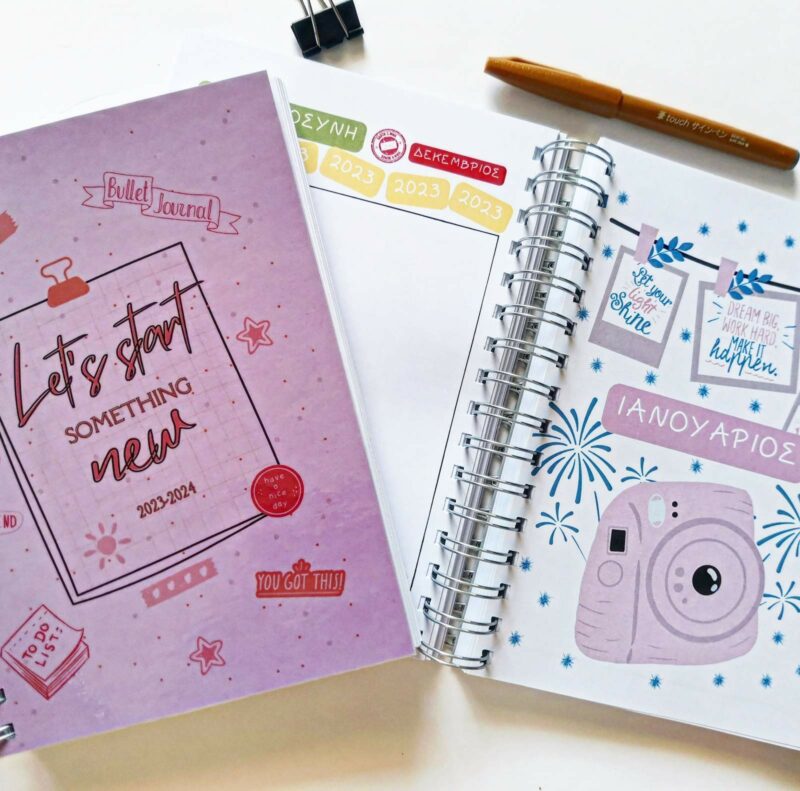 Bullet
Journal
Let's start
SOMETHING
new
2023-2024
have
a
nice
day
YOU GOT THIS!
TO DO
LIST:
ΔΕΚΕΜΒΡΙΟΣ
2023
2023
2023
touch サインペン
Let your
light
Shine
DREAM BIG,
WORK HARD,
MAKE IT
happen.
ΙΑΝΟΥΑΡΙΟΣ